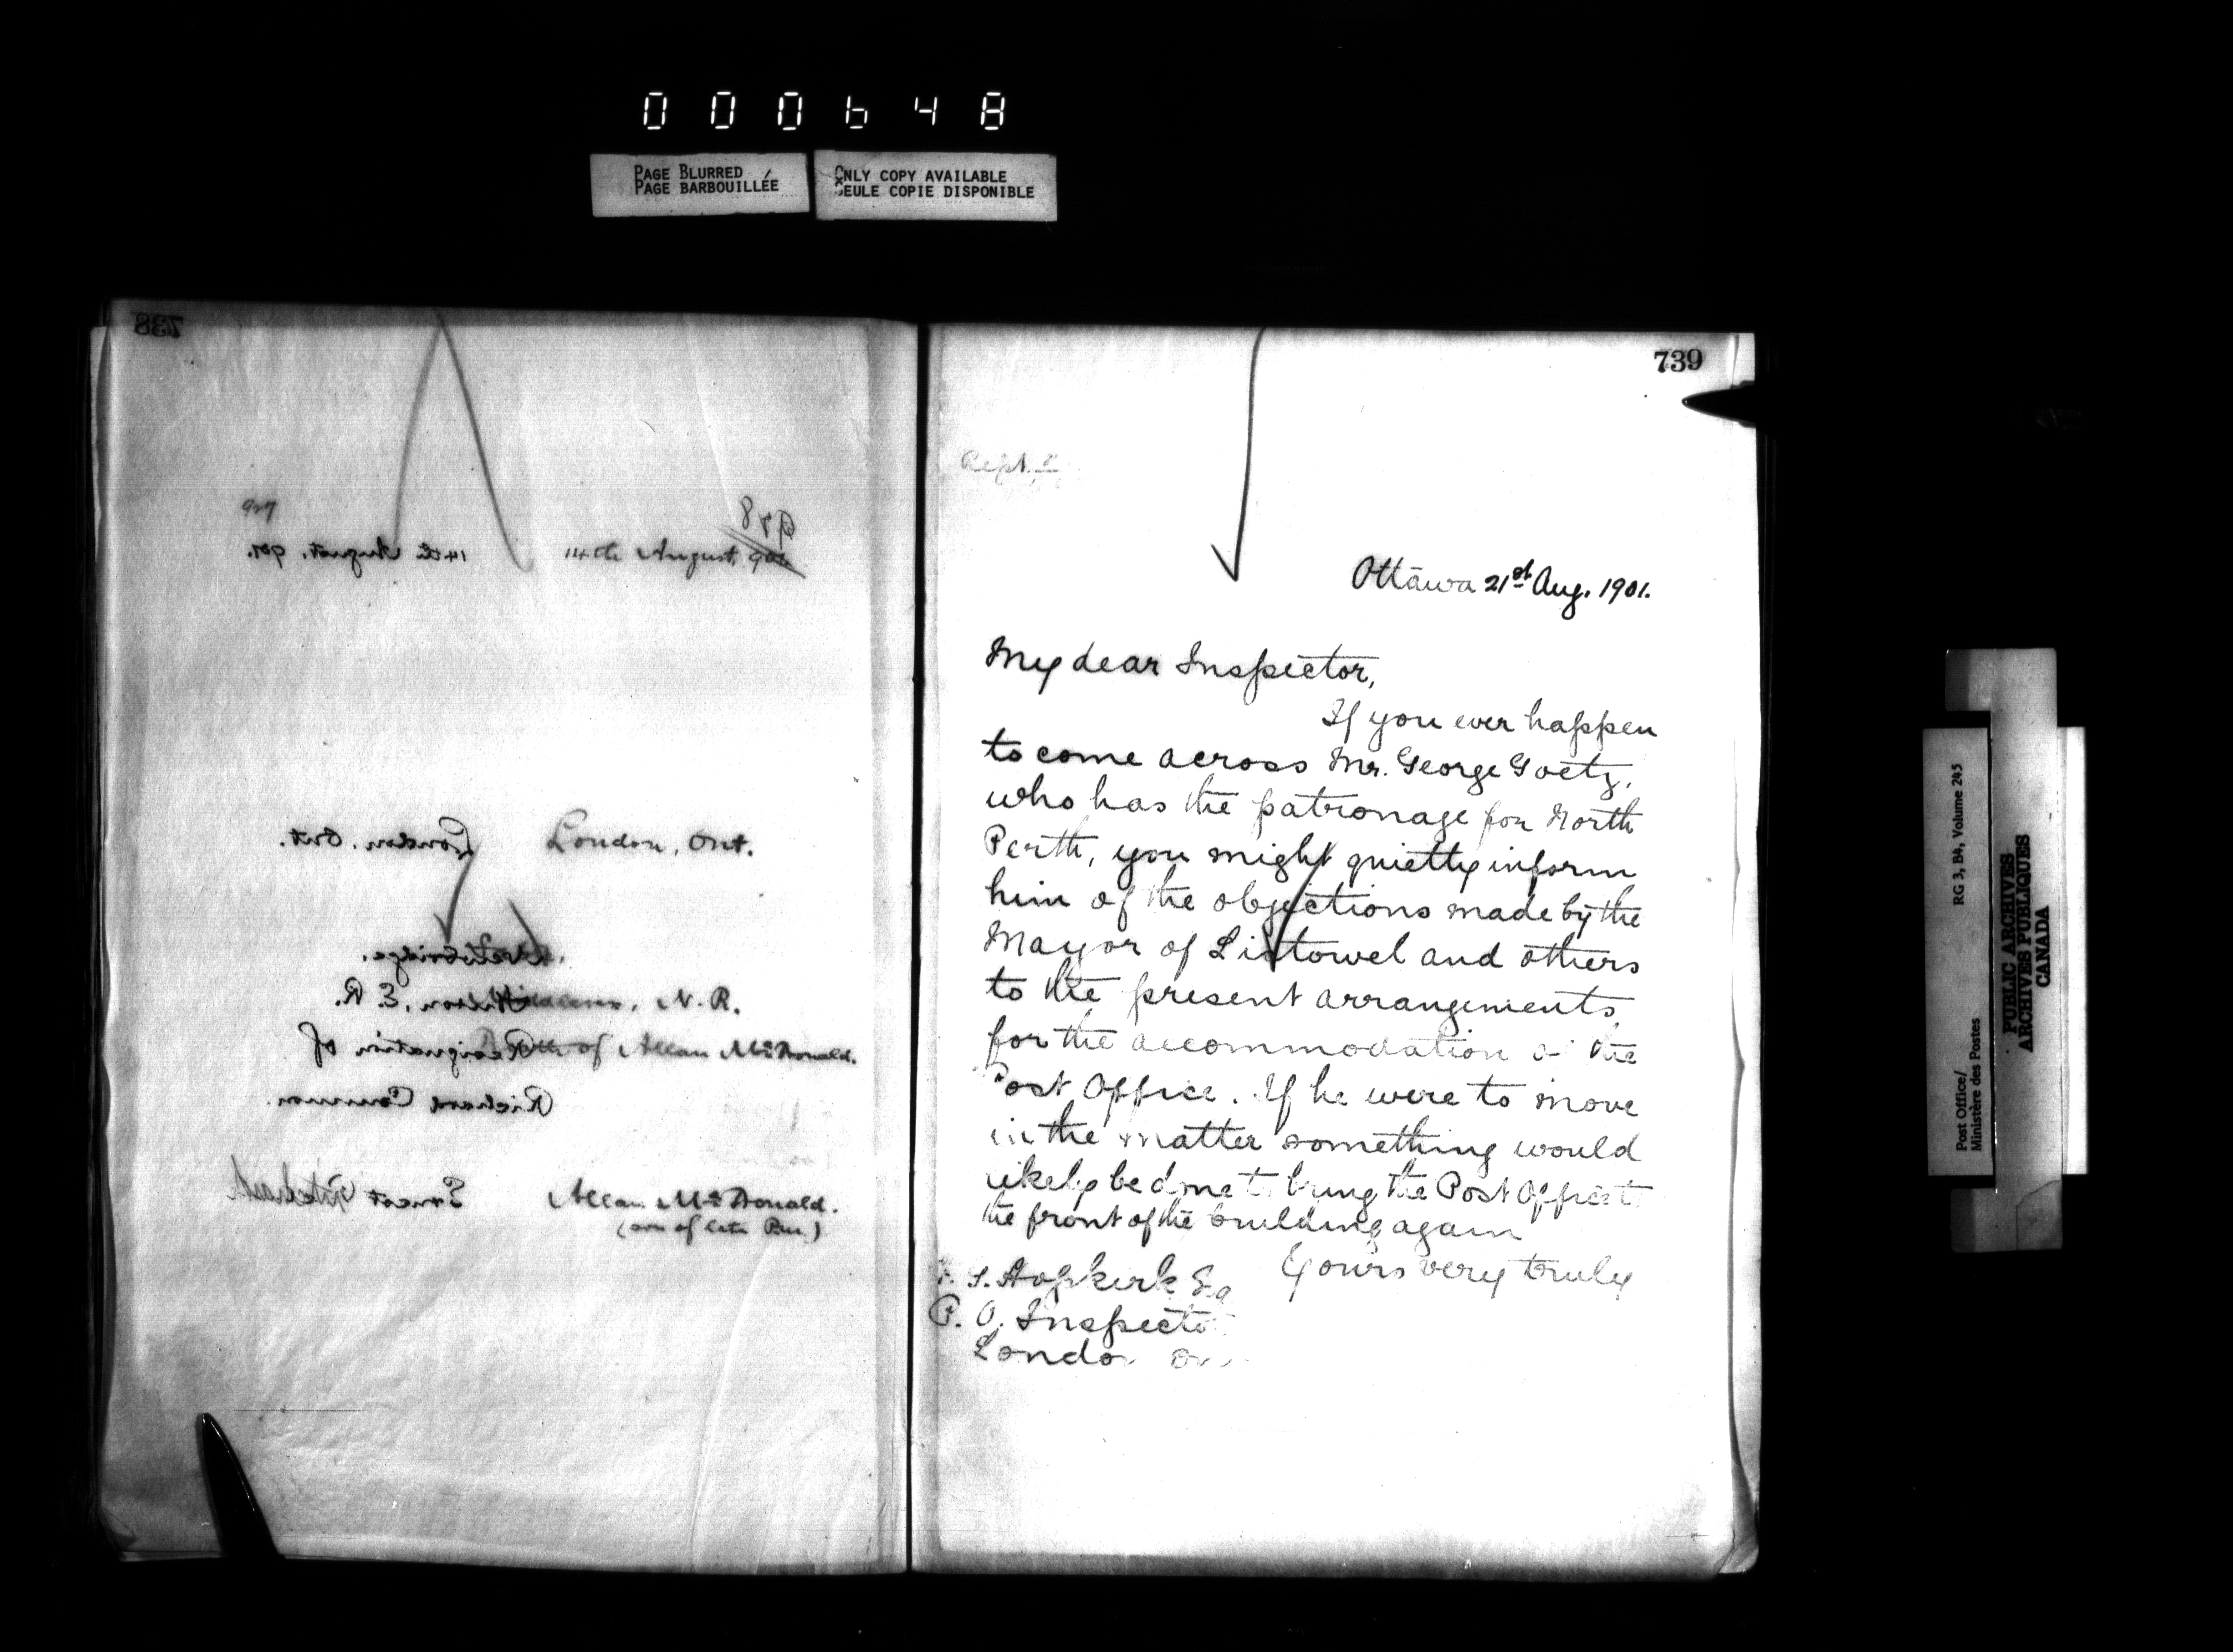 000648
PAGE BLURRED
PAGE BARBOUILLÉE
ONLY COPY AVAILABLE
SEULE COPIE DISPONIBLE
738
927
928
14th August, 901.
14th August, 901
London, Ont.
London, Ont.
Wilson, E. R.
N. R.
Resignation of
of Allan McDonald.
Richard Cannon.
Ernest
Allan McDonald.
(son of late Pm.)
739
Sept. 5
Ottawa 21st Aug. 1901.
My dear Inspector,
If you ever happen
to come across Mr. George Goetz,
who has the patronage for North
Perth, you might quietly inform
him of the objections made by the
Mayor of Listowel and others
to the present arrangements
for the accommodation of the
Post Office. If he were to move
in the matter something would
likely be done to bring the Post Office to
the front of the building again
Yours very truly
S. Hopkirk Esq
P. O. Inspector
London On
Post Office/
Ministère des Postes
RG 3, B4, Volume 245
PUBLIC ARCHIVES
ARCHIVES PUBLIQUES
CANADA